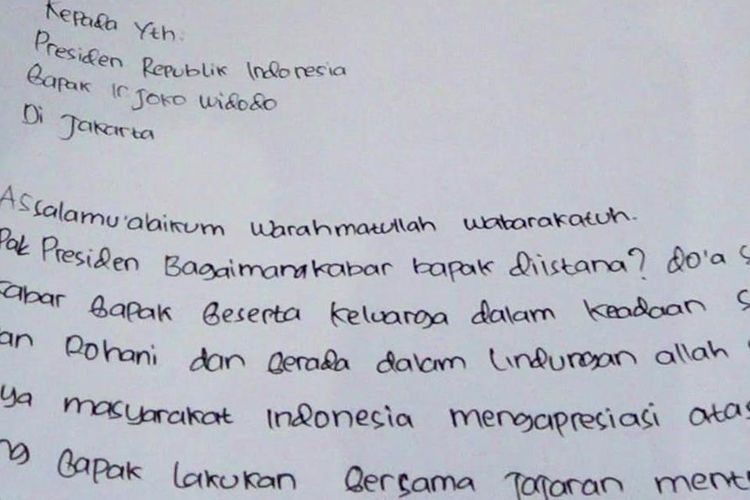 Kepada Yth.
Presiden Republik Indonesia
Bapak Ir Joko Widodo
Di Jakarta
Assalamu'alaikum Warahmatullah wabarakatuh.
Pak Presiden Bagaimana kabar bapak diistana? do'a s
kabar Bapak Beserta keluarga dalam keadaan s
an Rohani dan Berada dalam Lindungan allah
ya masyarakat Indonesia mengapresiasi atas
ng Bapak lakukan Bersama Jajaran ment